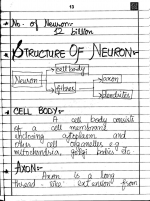 13
No. of Neuron:-
12 billion
STRUCTURE OF NEURON:-
Cell body
Neuron
Fibres
axon
dendrites
CELL BODY:-
A cell body consists
of a cell membrane
enclosing cytoplasm and
other cell organelles e.g
mitochondria, golgi bodies etc
AXON:-
Axon is a long
thread like extension from